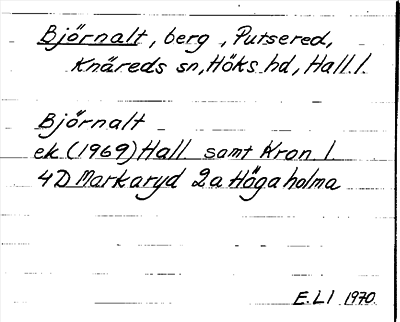 Björnalt, berg, Putsered,
Knäreds sn, Höks hd, Hall. l.
Björnalt
ek (1969) Hall. samt Kron. l.
4D Markaryd 2a Högaholma
E.L1 1970.